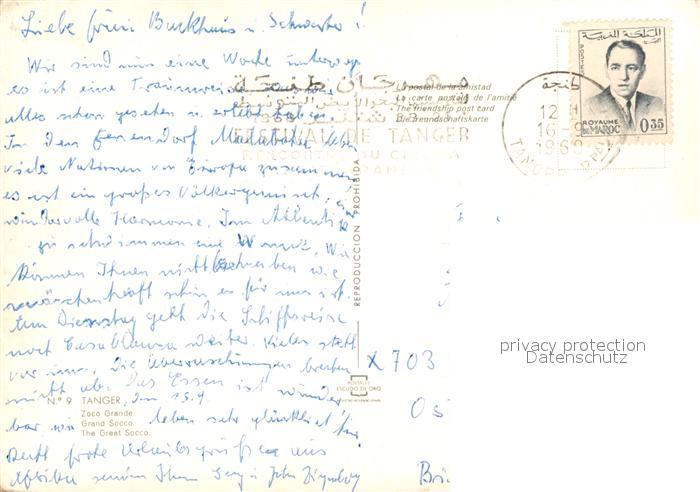 Liebe Frau Backhaus u. Schwester!
Wir sind nun eine Woche unterwegs
es ist eine Traumreise
alles schon gesehen u. erlebt haben
In dem Feriendorf Malabata leben
viele Nationen von Europa zusammen
es ist ein großes Völkergemisch, eine
wundervolle Harmonie. Im Atlantik
zu schwimmen eine Wonne. Wir
können Ihnen nicht beschreiben wie
märchenhaft schön es für uns ist.
Am Dienstag geht die Schiffsreise
nach Casablanca weiter. Vieles steht
vor uns. Die Überraschungen brechen
nicht ab. Das Essen ist wunder
bar wir leben sehr glücklich hier
Recht frohe Urlaubsgrüße aus
Afrika senden Ihnen
den 15.9.
N.º 9 TANGER
Zoco Grande.
Grand Socco.
The Great Socco.
REPRODUCCION PROHIBIDA
POSTALES
ESCUDO DE ORO
مهرجان طنجة
FESTIVAL DE TANGER
La postal de la amistad
La carte postale de l'amitié
The friendship post card
Die freundschaftskarte
طنجة
16-9
196
TANGER
المملكة المغربية
ROYAUME
DU MAROC
0,35
X 703
Os
Bri
privacy protection
Datenschutz